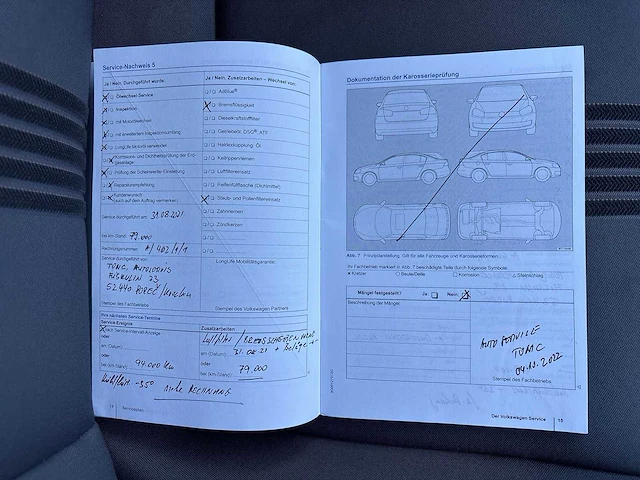 Service-Nachweis 5
Ja / Nein, Durchgeführt wurde:
Ölwechsel-Service
Inspektion
mit Motorölwechsel
mit erweitertem Inspektionsumfang
LongLife Motoröl verwendet
Korrosions- und Dichtheitsprüfung der Erd-
gasanlage
Prüfung der Scheinwerfer-Einstellung
Reparaturempfehlung
Kundenwunsch
(auch auf dem Auftrag vermerken)
Service durchgeführt am: 31.08.2021
bei km-Stand: 79.000
Rechnungsnummer: A/402/1/1
Service durchgeführt von:
TOMC, AUTODOMS
52440 POREČ / Kroatien
Stempel des Fachbetriebs
Ja / Nein, Zusatzarbeiten – Wechsel von:
AdBlue®
Bremsflüssigkeit
Dieselkraftstofffilter
Getriebeöl: DSG®, ATF
Haldexkupplung: Öl
Keilrippenriemen
Luftfiltereinsatz
Reifenfüllflasche (Dichtmittel)
Staub- und Pollenfiltereinsatz
Zahnriemen
Zündkerzen
LongLife Mobilitätsgarantie:
Stempel des Volkswagen Partners
Ihre nächsten Service-Termine
Service-Ereignis
nach Service-Intervall-Anzeige
oder
am (Datum):
oder
bei (km-Stand): 94.000 km
Zusatzarbeiten:
am (Datum): 31.08.21
oder
bei (km-Stand): 79.000
siehe RECHNUNG
Serviceplan
Dokumentation der Karosserieprüfung
Abb. 7 Prinzipdarstellung: Gilt für alle Fahrzeuge und Karosserieformen.
Ihr Fachbetrieb markiert in Abb. 7 beschädigte Teile durch folgende Symbole:
× Kratzer ○ Beule/Delle □ Korrosion △ Steinschlag
Mängel festgestellt? Ja Nein
Beschreibung der Mängel:
TOMC
04.11.2022
Stempel des Fachbetriebs
Der Volkswagen Service 15